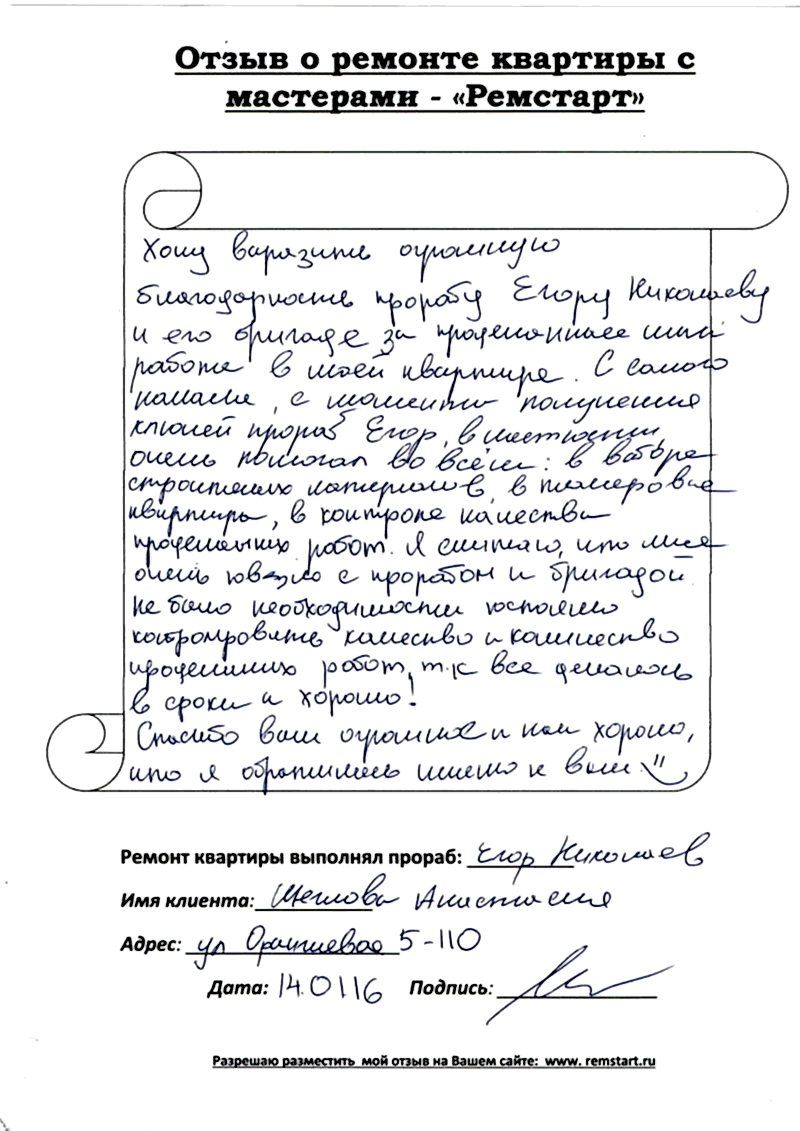 Отзыв о ремонте квартиры с
мастерами - «Ремстарт»
Хочу выразить огромную
благодарность прорабу Егору Николаеву
и его бригаде за проделанные ими
работы в моей квартире. С самого
начала, с момента получения
ключей прораб Егор, в частности,
очень помогал во всём: в выборе
строительных материалов, в планировке
квартиры, в контроле качества
проделанных работ. Я считаю, что мне
очень повезло с прорабом и бригадой
не было необходимости постоянно
контролировать качество и количество
проделанных работ, т.к все делалось
в сроки и хорошо!
Спасибо вам огромное и как хорошо,
что я обратилась именно к вам
Ремонт квартиры выполнял прораб: Егор Николаев
Имя клиента: Щеглова Анастасия
Адрес: ул Оранжевая 5-110
Дата: 14.01.16 Подпись:
Разрешаю разместить мой отзыв на Вашем сайте: www. remstart.ru